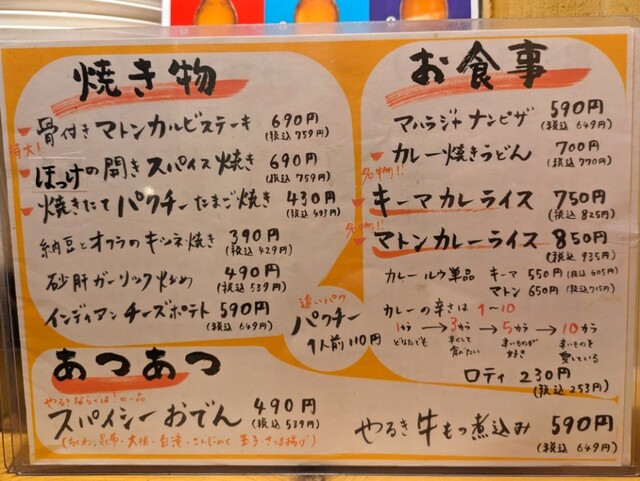 焼き物
骨付きマトンカルビステーキ 690円
(税込759円)
特大!
ほっけの開きスパイス焼き 690円
(税込759円)
焼きたてパクチーたまご焼き 430円
(税込493円)
納豆とオクラのキツネ焼き 390円
(税込429円)
砂肝ガーリック炒め 490円
(税込539円)
インディアンチーズポテト 590円
(税込649円)
追いパク
パクチー
1人前110円
あつあつ
やるきならでは!の一品
スパイシーおでん 490円
(税込539円)
(ちくわ・昆布・大根・白滝・こんにゃく 玉子・さつま揚げ)
お食事
マハラジャナンピザ 590円
(税込649円)
カレー焼きうどん 700円
(税込770円)
名物!!
キーマカレーライス 750円
(税込825円)
名物!!
マトンカレーライス 850円
(税込935円)
カレールウ単品 キーマ 550円(税込605円)
マトン 650円(税込715円)
カレーの辛さは 1〜10
1から → 3から → 5から → 10から
どなたでも 辛くして食べたい 辛いものが好き 辛いものを愛している
ロティ 230円
(税込253円)
やるき牛もつ煮込み 590円
(税込649円)